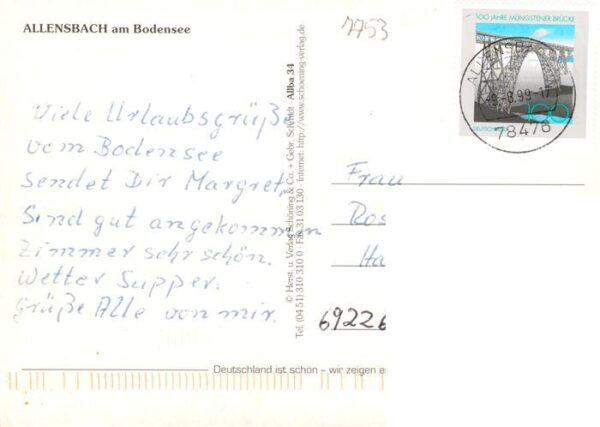 ALLENSBACH am Bodensee
7753
100 JAHRE MÜNGSTENER BRÜCKE
ALLENSBA
8.99-17
100
DEUTSCHL
78476
Viele Urlaubsgrüße
vom Bodensee
sendet Dir Margret,
Sind gut angekommen
Zimmer sehr schön.
Wetter Supper.
Grüße Alle von mir.
© Herst. u. Verlag Schöning & Co. + Gebr. Schmidt Allba 34
Tel. (04 51) 310 310 0 · Fax 31 03 130 · Internet: http://www.schoening-verlag.de
Frau
Ros
Ha
69226
Deutschland ist schön – wir zeigen e